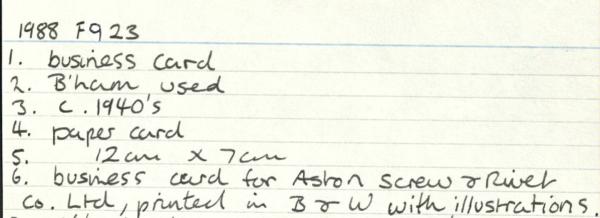 1988 F923
1. business card
2. B'ham used
3. C. 1940's
4. paper card
5. 12cm x 7cm
6. business card for Aston Screw & Rivet
Co. Ltd, printed in B & W with illustrations.